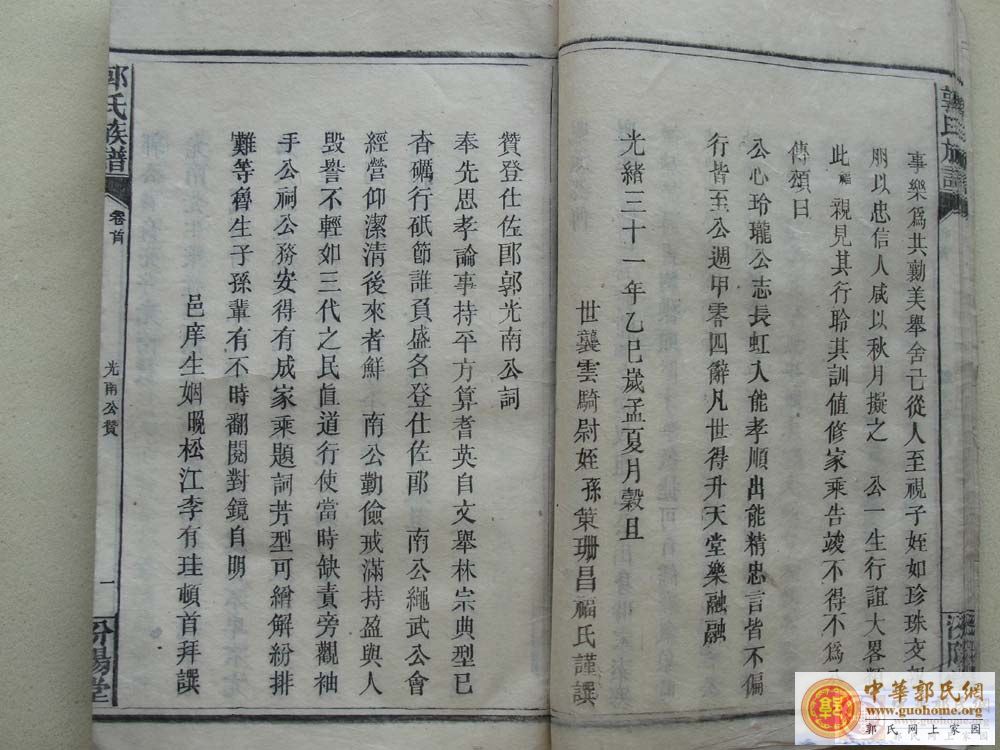 郭氏族譜
事樂為共勷美舉舍己從人至視子姪如珍珠交
朋以忠信人咸以秋月擬之 公一生行誼大畧
此 福 親見其行聆其訓值修家乘告竣不得不為
傳頌曰
公心玲瓏公志長虹入能孝順出能精忠言皆不偏
行皆至公週甲零四辭凡世得升天堂樂融融
光緒三十一年乙巳歲孟夏月穀旦
世襲雲騎尉姪孫策珊昌福氏謹譔
贊登仕佐郎郭光南公詞
奉先思孝論事持平方算耆英自文舉林宗典型已
杳礪行砥節誰負盛名登仕佐郎 南公繩武公會
經營仰潔清後來者鮮 南公勤儉戒滿持盈與人
毀譽不輕如三代之民直道行使當時缺責旁觀袖
手公祠公務安得有成家乘題詞芳型可繪解紛排
難等魯生子孫輩有不時翻閱對鏡自明
邑庠生姻晚松江李有珪頓首拜譔
郭氏族譜
卷首
光南公贊
一
汾陽堂
中華郭氏網
www.guohome.org
郭氏网上家园